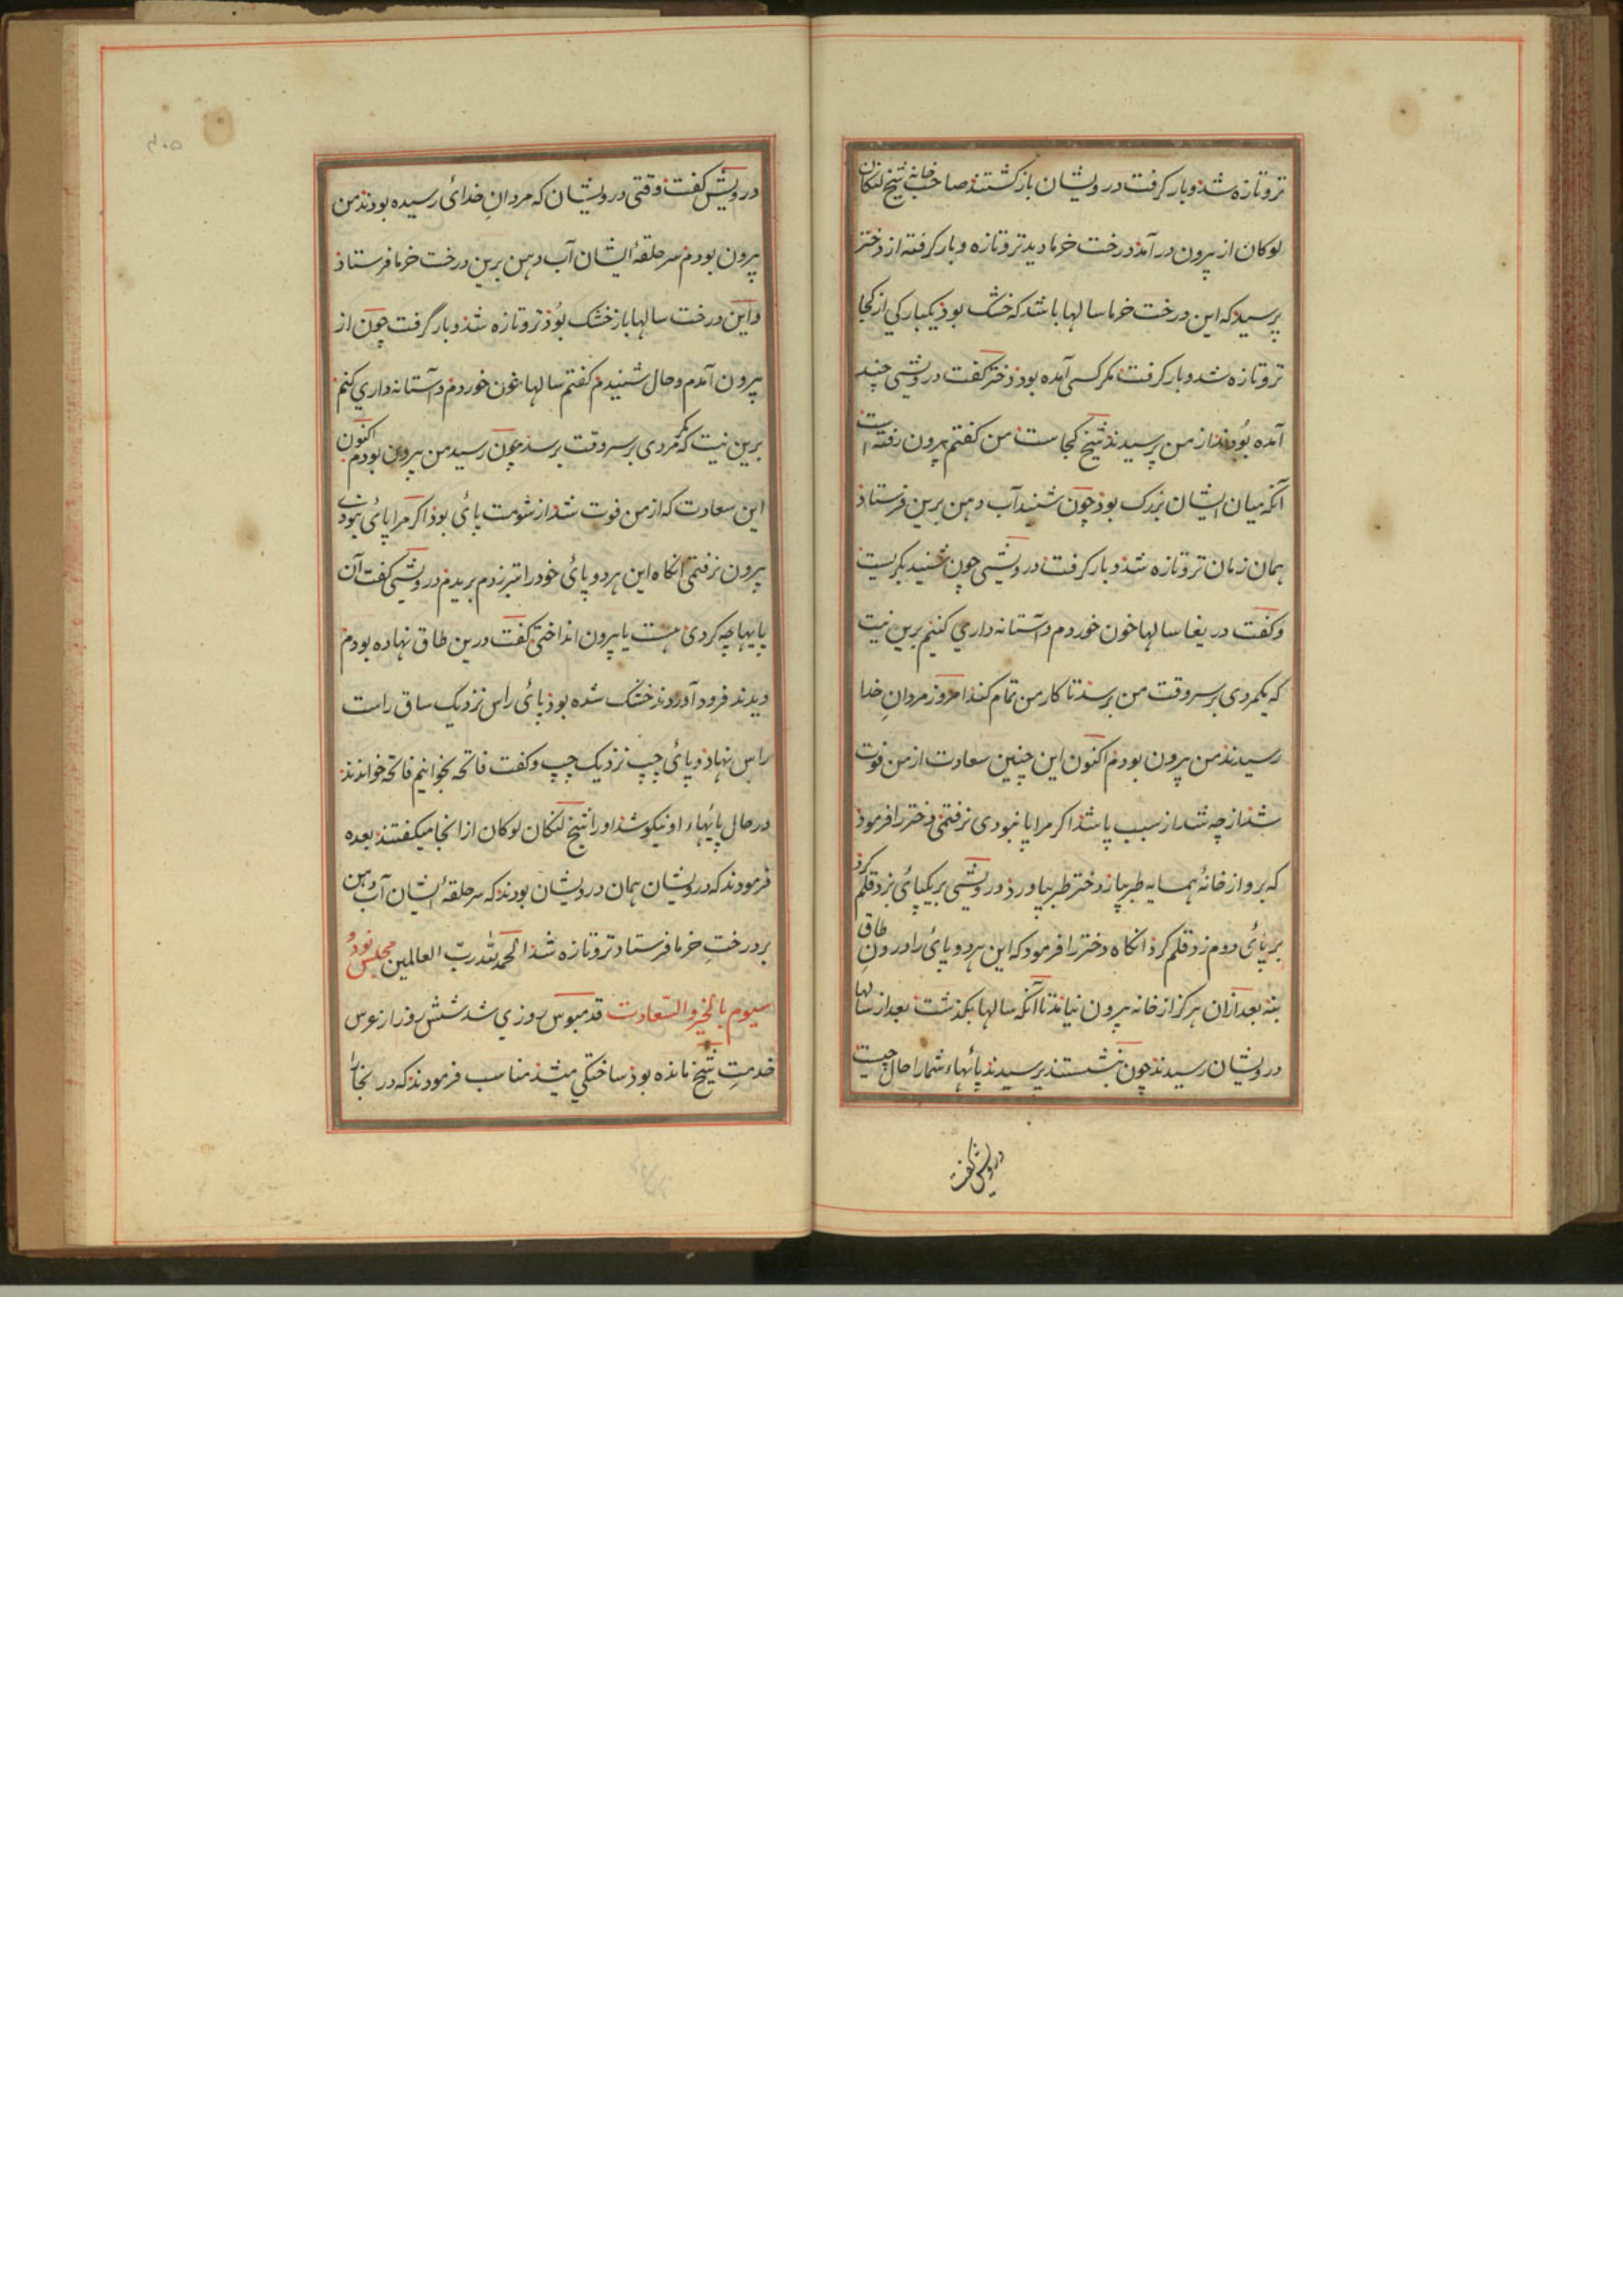 تروتازه شد وبار کرفت درویشان بازکشتند صاحب خانه شیخ لنکان
لوکان از بیرون درآمد درخت خرما دید تروتازه وبار کرفته از دختر
پرسید که این درخت خرما سالها باشد که خشک بوذ یکبارکی از کجا
تروتازه شد وبار کرفت مکر کسی آمده بوذ دختر کفت درویشی چند
آمده بُودند از من پرسیدند شیخ کجاست من کفتم بیرون رفته است
آنکه میان ایشان بزرک بوذ چون شنید آب دهن برین فرستاذ
همان زمان تروتازه شذ وبار کرفت درویشی چون شنید بکریست
وکفت دریغا سالها خون خوردم وآستانه داری کنیم برین نیت
که یکمردی بر سر وقت من برسد تا کار من تمام کند امروز مردانِ خدا
رسیدند من بیرون بودم اکنون این چنین سعادت از من فوت
شد از چه شد از سبب پا شد اکر مرا پا نبودی نرفتمی دختر را فرموذ
که برو از خانهٔ همسایه طبر بیار دختر طبر بیاورد درویشی بر یکپائی بزد قلم کرد
بر پائی دوم زد قلم کرد انکاه دختر را فرمود که این هر دو پائی را در رونِ طاق
بنه بعد ازان هرکز از خانه بیرون نیامد تا آنکه سالها بکذشت بعد از سالها
درویشان رسیدند چون بنشستند پرسیدند پائهاء شما را حال چیست
درویش کفت
درویش کفت وقتی درویشان که مردانِ خدائی رسیده بودند من
بیرون بودم سرحلقهٔ ایشان آب دهن برین درخت خرما فرستاذ
واین درخت سالها باز خشک بُوذ تروتازه شذ وبار گرفت چون از
بیرون آمدم وحال شنیدم کفتم سالها خون خوردم وآستانه داری کنم
برین نیت که مکر مردی بر سر وقت برسد چون رسید من بیرون بودم اکنون
این سعادت که از من فوت شد از شومت پائی بوذ اکر مرا پائی نبودی
بیرون نرفتمی انکاه این هر دو پائی خود را تبر زدم بریدم درویشی کفت آن
پایها چه کردی هست یا بیرون انداختی کفت درین طاق نهاده بودم
دیدند فرود آوردند خشک شده بوذ پائی راس نزدیک ساق راست
راس نهاذ وپائی چپ نزدیک چپ وکفت فاتحه بخوانیم فاتحه خواندند
درحال پائهاء او نیکو شذ اورا شیخ لنکان لوکان از انجا میکفتند بعده
فرمودند که درویشان همان درویشان بودند که سرحلقهٔ ایشان آب دهن
بر درختِ خرما فرستاد تروتازه شذ الحمد للّٰه ربّ العالمین مجلس نود و
سیوم بالخیر والسّعادت قدمبوس روزی شد شش روز از عرس
خدمتِ شیخ مانده بوذ ساختکی میشذ مناسب فرمودند که در بخارا